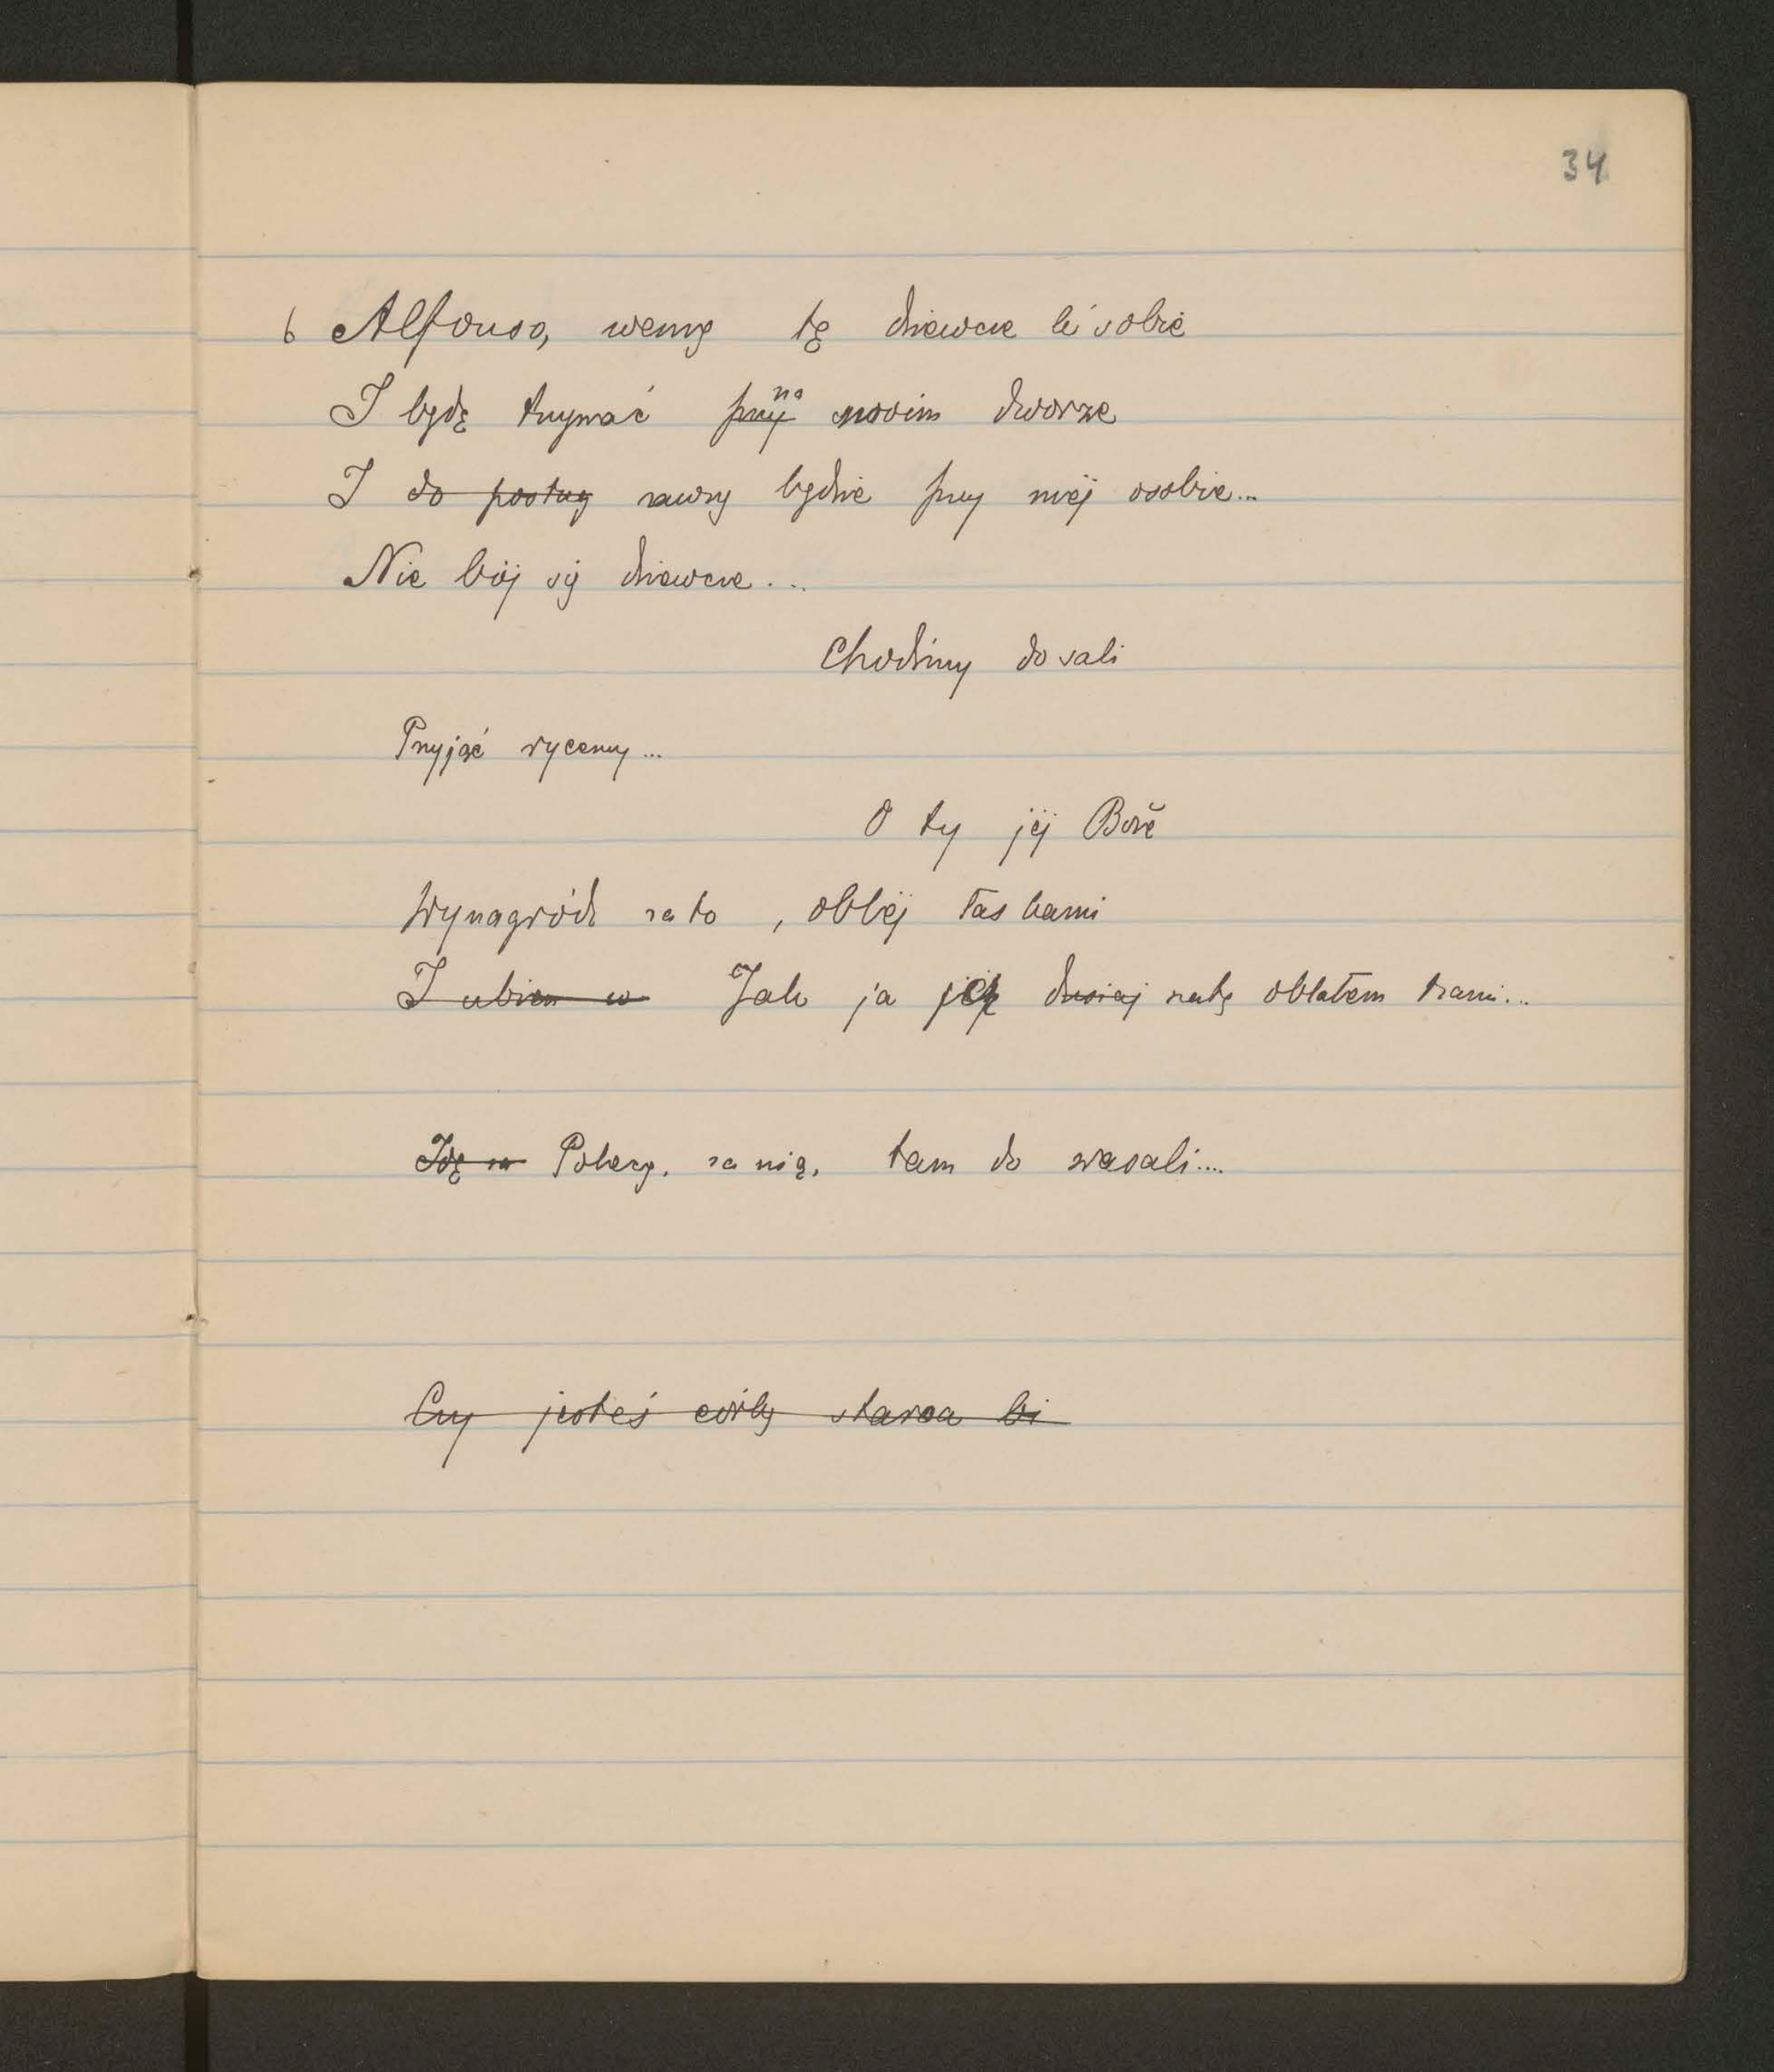 34
6 Alfonso, wezmę tę dziewczę k'sobie
I będę trzymać przy na moim dworze
I do posług zawsze będzie przy mej osobie...
Nie bój się dziewczę...
Chodźmy do sali
Przyjąć rycerzy...
O ty jej Boże
Wynagródź za to, oblej łaskami
I ubierz w Jak ja jej dzisiaj szatę oblałem łzami...
Idę za Pobiegę. za nią, tam do sali....
Czy jesteś córką starca bi